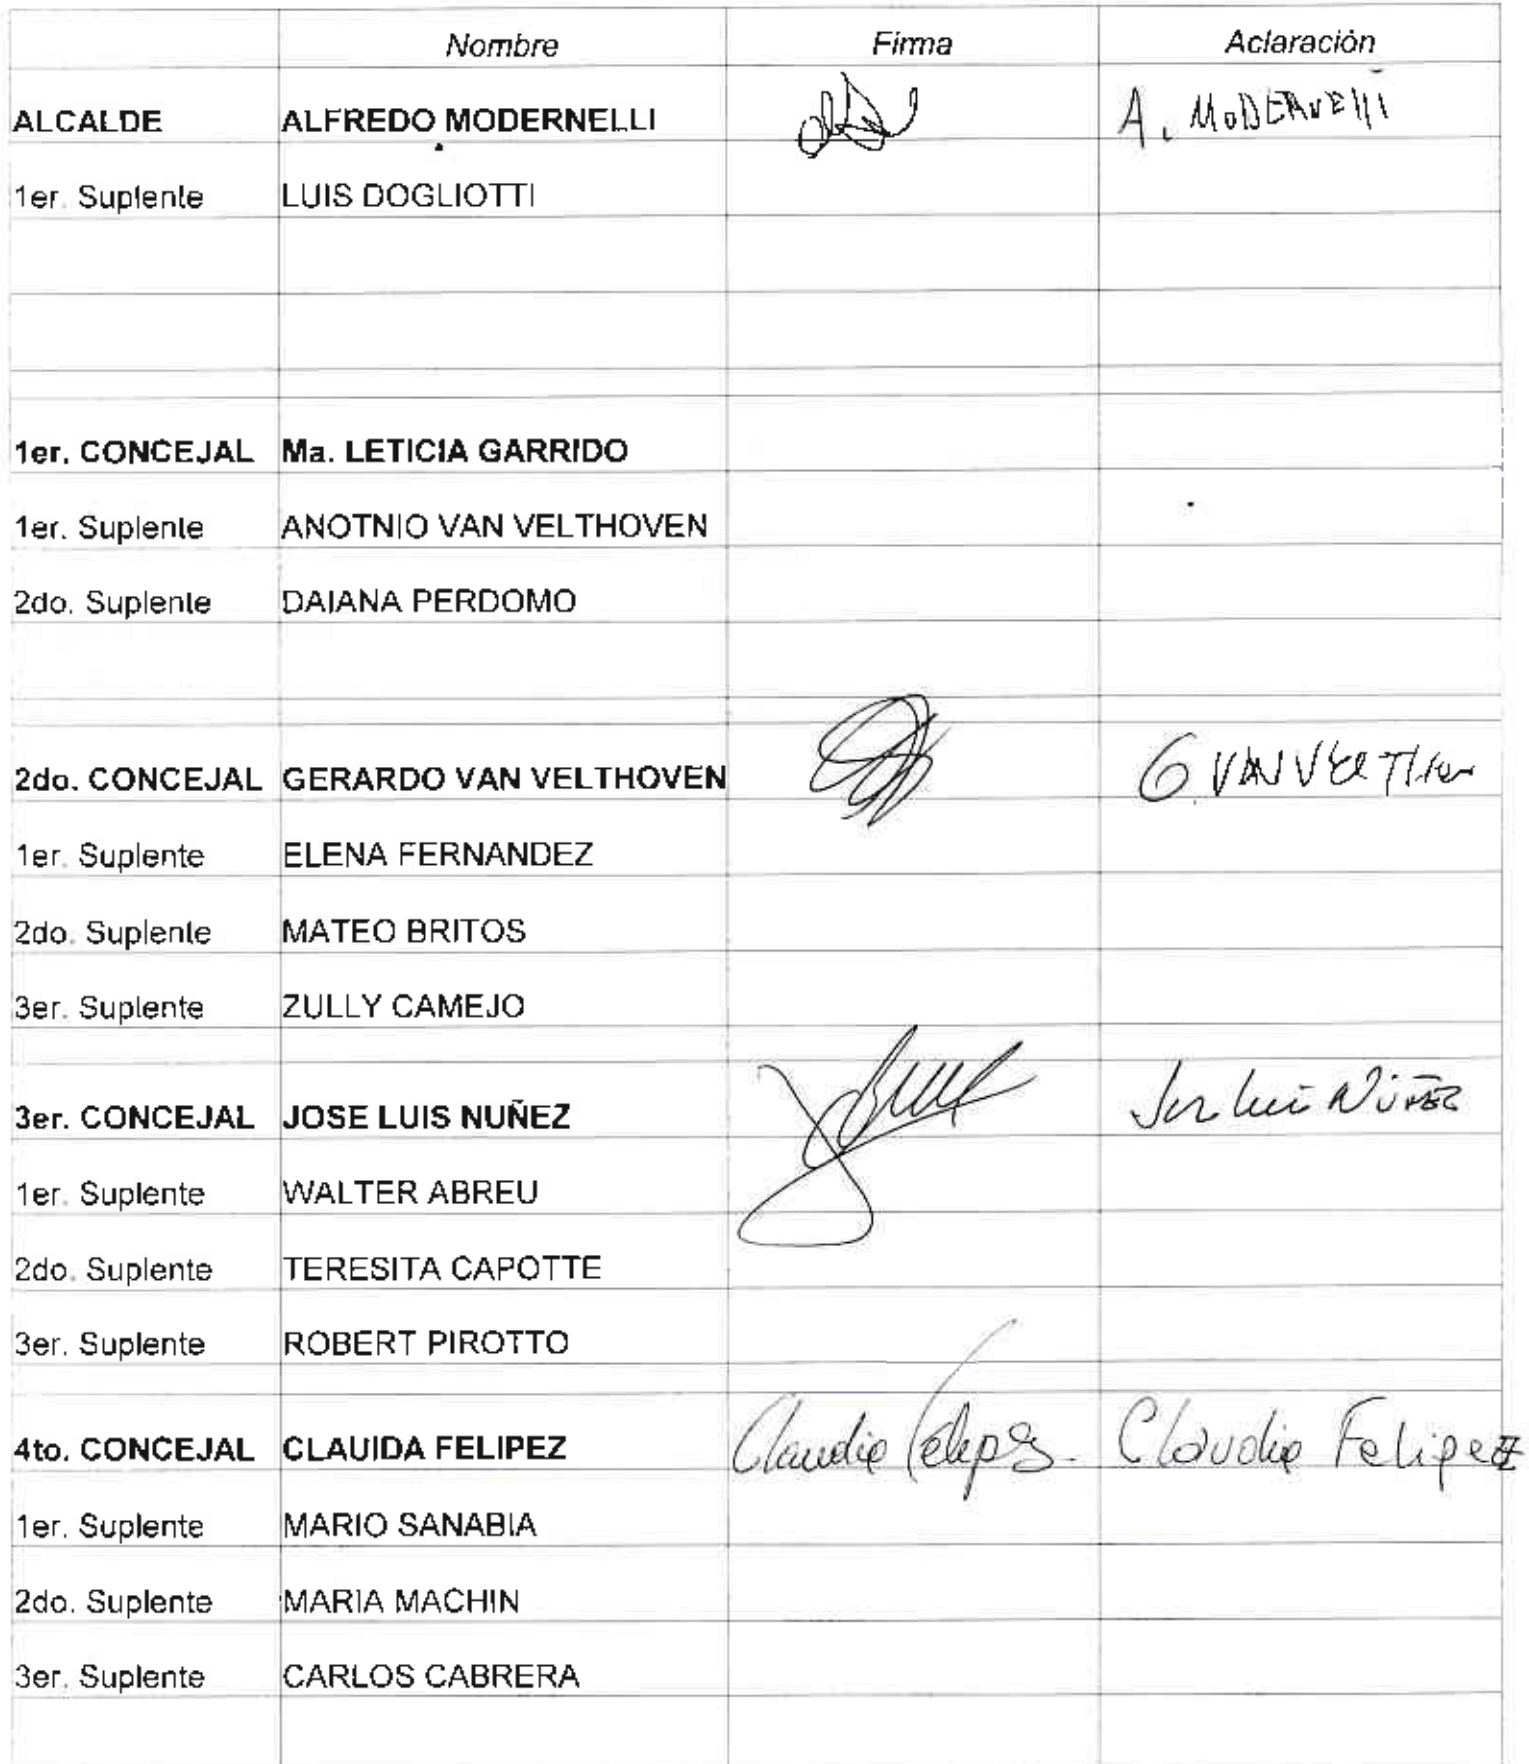 Nombre Firma Aclaración
ALCALDE ALFREDO MODERNELLI A. MODERNELLI
1er. Suplente LUIS DOGLIOTTI
1er. CONCEJAL Ma. LETICIA GARRIDO
1er. Suplente ANOTNIO VAN VELTHOVEN
2do. Suplente DAIANA PERDOMO
2do. CONCEJAL GERARDO VAN VELTHOVEN G. VAN
1er. Suplente ELENA FERNANDEZ
2do. Suplente MATEO BRITOS
3er. Suplente ZULLY CAMEJO
3er. CONCEJAL JOSE LUIS NUÑEZ Jose Luis Núñez
1er. Suplente WALTER ABREU
2do. Suplente TERESITA CAPOTTE
3er. Suplente ROBERT PIROTTO
4to. CONCEJAL CLAUIDA FELIPEZ Claudia Felipez. Claudia Felipez
1er. Suplente MARIO SANABIA
2do. Suplente MARIA MACHIN
3er. Suplente CARLOS CABRERA